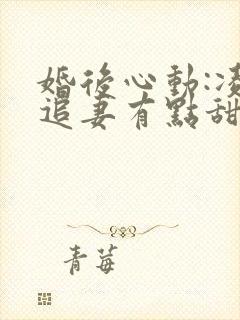 婚後心動:凌
追妻有點甜
青莓